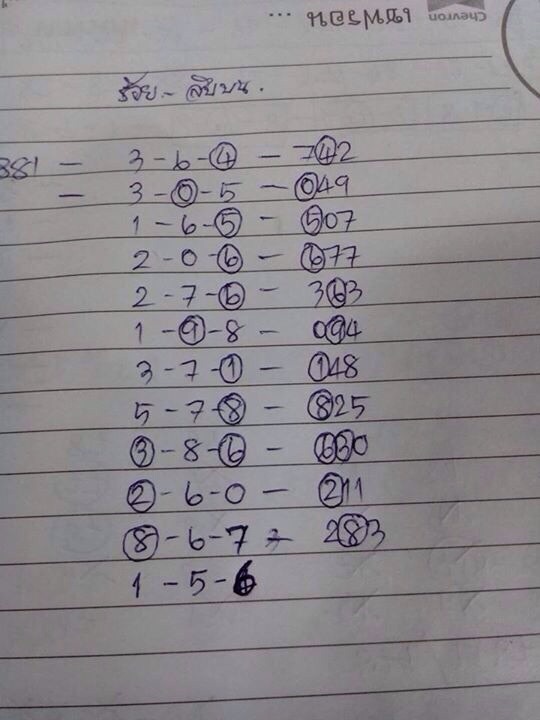 เติมพรอน ...
Chevron
ร้อย - สิบบน.
381 - 3-6-4 - 742
- 3-0-5 - 049
1-6-5 - 507
2-0-6 - 677
2-7-6 - 363
1-9-8 - 094
3-7-1 - 148
5-7-8 - 825
3-8-6 - 630
2-6-0 - 211
8-6-7 - 283
1-5-6